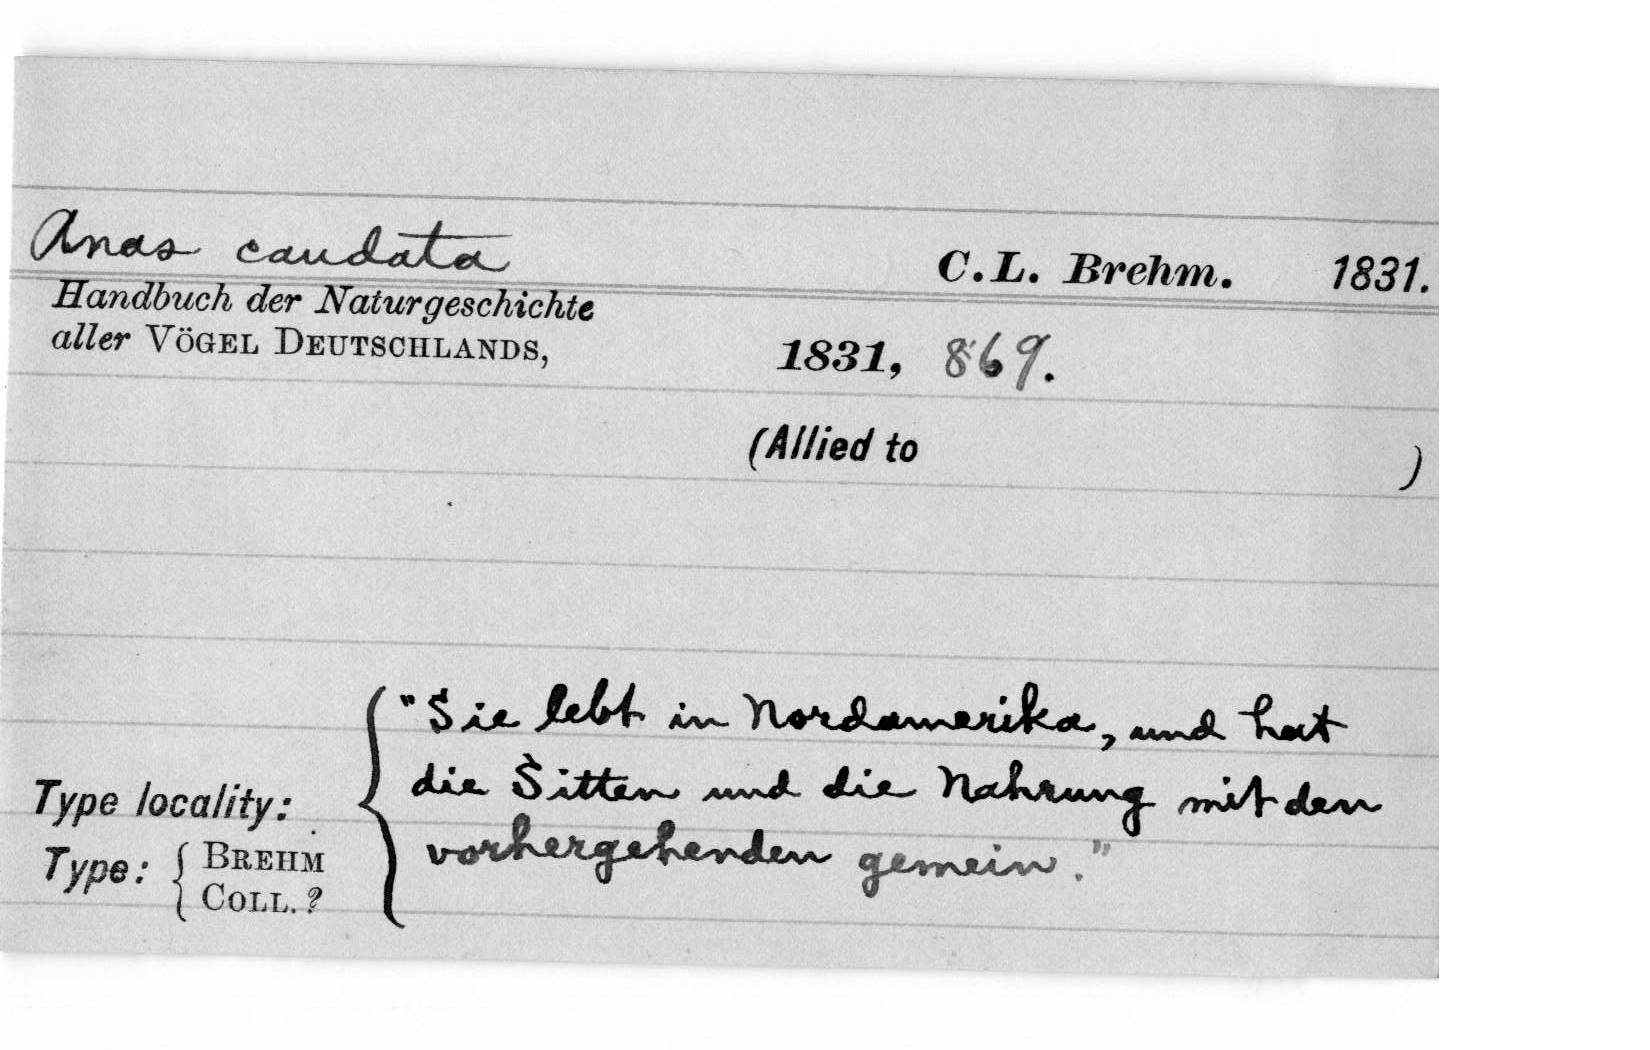 Anas caudata C.L. Brehm. 1831.
Handbuch der Naturgeschichte
aller VÖGEL DEUTSCHLANDS, 1831, 869.
(Allied to )
"Sie lebt in Nordamerika, und hat
die Sitten und die Nahrung mit den
vorhergehenden gemein."
Type locality:
Type: { BREHM
COLL. ?